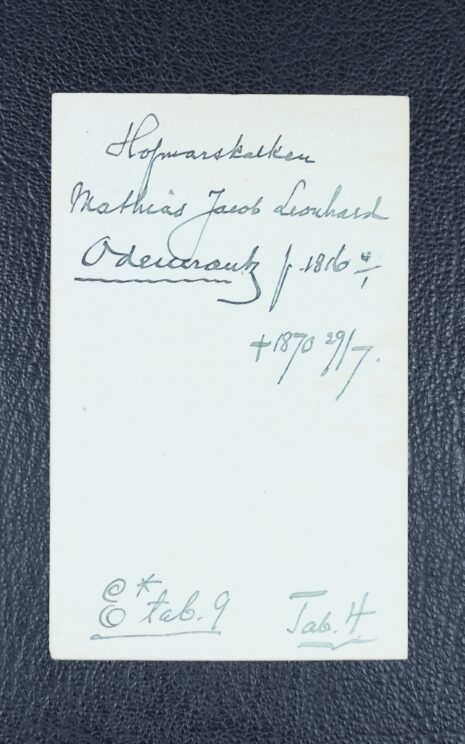 Hofmarskalken
Mathias Jacob Leonhard
Odencrantz f. 1816 4/1
+ 1870 29/7.
E* tab. 9 Tab. 4.